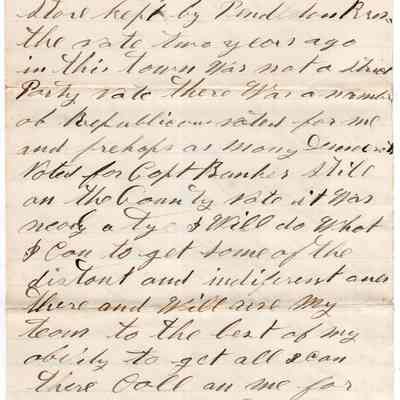 Store kept by Pendleton Bros.
the vote two years ago
in this town was not a strict
Party vote there was a number
of Republicans voted for me
and prehaps as many Democrats
voted for Capt Banker still
on the County vote it was
nearly a tye I Will do What
I Can to get some of the
distant and indiferent ones
there and Will use My
team to the best of my
ability to get all I can
there Call on me for